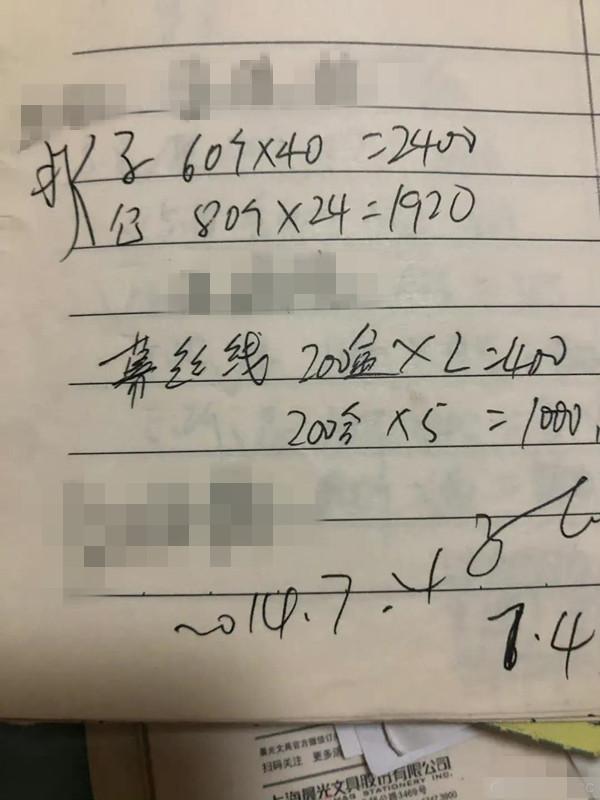 子 60个×40 =2400
公 80个×24=1920
蕾丝线 200盒×2=400
200盒×5 =1000
2014.7.4
7.4
晨光文具官方微信订
扫码关注 更多活
上海晨光文具股份有限公司
STATIONERY INC.
公路3469号